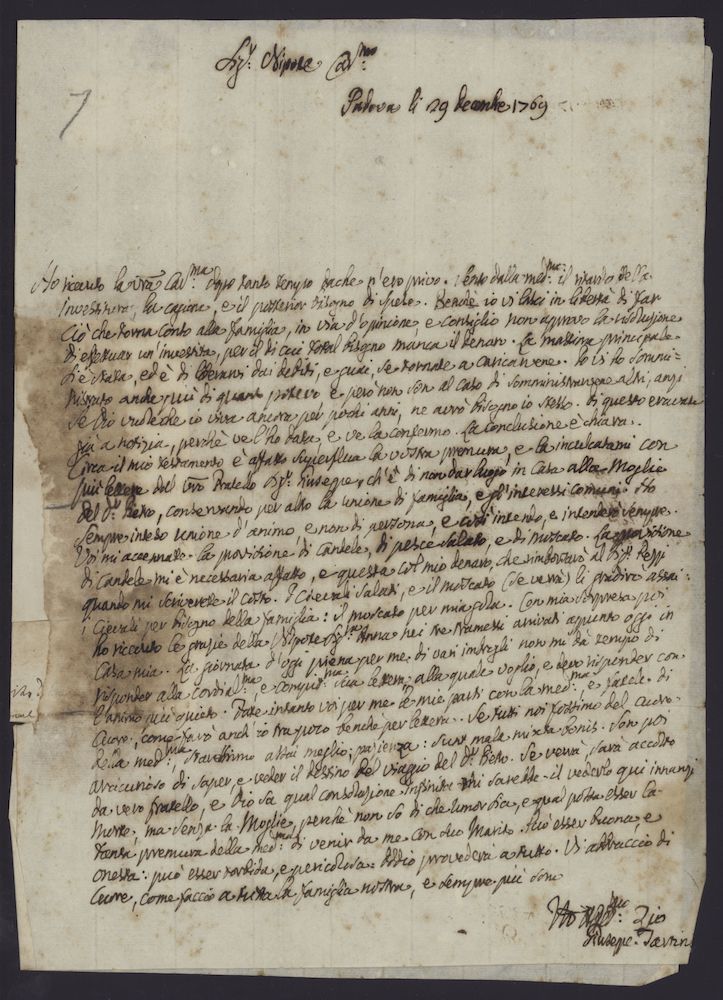 Sig.r Nipote Car.mo
Padova li 29 decembre 1769
Ho ricevuto la vra Car.ma dopo tanto tempo dache n'ero privo. Sento dalla med.ma il ritardo della
Investitura, la cagione, e il posterior bisogno di spese. Benche io vi lasci in libertà di far
Ciò che torna conto alla famiglia, in via d'opinione, e consiglio non approvo la risoluzione
di effettuar un'investita, per il di cui total bisogno manca il denaro. La massima principale
è stata, ed è di liberarsi dai debiti, e guai, se tornate a caricarvene. Io vi ho sommi-
nistrato anche più di quanto potevo e però non son al caso di somministrarvene altri, anzi
se Dio vuole che io viva ancora per pochi anni, ne avrò bisogno io stesso. di questo eravate
già a notizia, perchè ve l'ho data, e ve la confermo. La conclusione è chiara.
Circa il mio testamento è affatto superflua la vostra premura, e la inculcatami con
più lettere dal vro Fratello Sig.r Giuseppe, ch'è di non dar luogo in Casa alla Moglie
del S.r Pietro, conservando per altro la unione di famiglia, e gl'interessi comuni. Ho
sempre inteso unione d'animo e non di persona, e così intendo, e intenderò sempre.
Voi mi accennate la provisione di Candele, di pesce salato, e di moscato. La provisione
di Candele mi è necessaria affatto, e questa col mio denaro, che rimborserò al Sig.r
quando mi scriverete il costo. I Cievali salati, e il moscato (se verrà) li gradirò assai:
i Cievali per bisogno della famiglia: il moscato per mia gola. Con mia sorpresa poi
ho ricevuto le grazie della Nipote Sig.ra Anna nei tre tramessi arrivati appunto oggi in
Casa mia. La giornata d'oggi piena per me di vari imbrogli non mi dà tempo di
risponder alla cordial.ma, e compit.ma sua lettera, alla quale voglio, e devo risponder con
l'animo più quieto. Fate intanto voi per me le mie parti con la med.ma, e fatele di
Cuore, come farò anch'io tra poco benchè per lettera. Se tutti noi fossimo del Cuore
della med.ma, staressimo assai meglio; pazienza: sunt mala mixta bonis. Son poi
arcicurioso di saper, e veder il destino del viaggio del S.r Pietro. Se verrà, sarà accolto
da vero fratello, e Dio sa qual consolazione infinita mi sarebbe il vederlo qui innanzi
Morte, ma senza la Moglie, perchè non so di che umor sia, e qual possa esser la
tanta premura della med.ma di venir da me con suo Marito. Può esser buona, e
onesta: può esser torbida, e pericolosa. Iddio provederà a tutto. Vi abbraccio di
Cuore, come faccio a tutta la famiglia nostra, e sempre più sono
Zio
Giuseppe Tartini